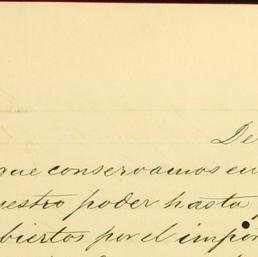 De
que conservamos en
uestro poder hasta
biertos por el impor